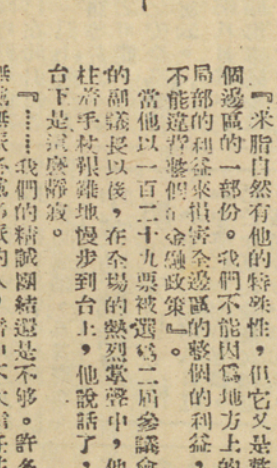 『米脂自然有他的特殊性，但它又是整
個邊區的一部份。我們不能因爲地方上的
局部的利益來損害全邊區的整個的利益
不能違背整個的金融政策』。
當他以一百二十九票被選爲二屆參議會
的副議長以後，在全場的熱烈掌聲中，他
柱着手杖艱難地慢步到台上，他說話了，
台下是這麼靜寂。
『……我們的精誠團結還是不够。許多